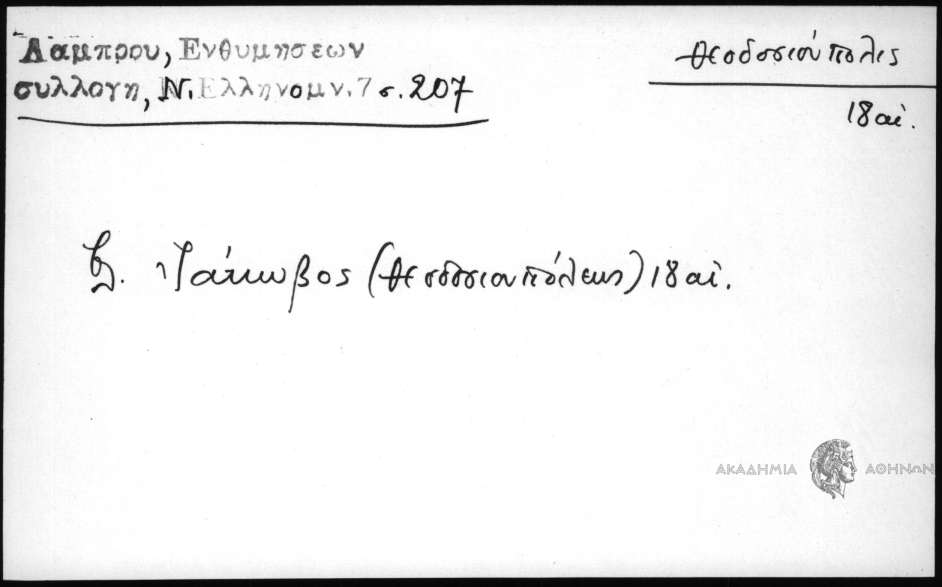 Λαμπρου, Ενθυμησεων
συλλογη, Ν. Ελληνομν. 7 σ. 207
Θεοδοσιούπολις
18 αἰ.
βλ. Ἰάκωβος (Θεοδοσιουπόλεως) 18 αἰ.
ΑΚΑΔΗΜΙΑ ΑΘΗΝΩΝ